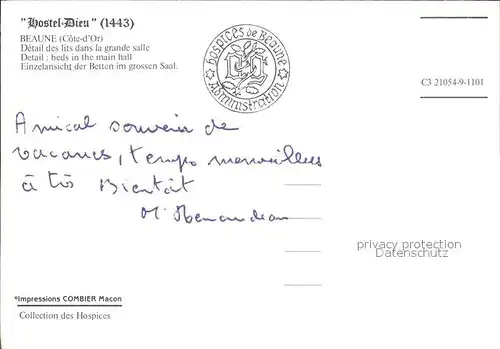 "Hostel-Dieu" (1443)
BEAUNE (Côte-d'Or)
Détail des lits dans la grande salle
Detail : beds in the main hall
Einzelansicht der Betten im grossen Saal.
Hospices de Beaune
Administration
C3 21054-9-1101
Amical souvenir de
vacances, temps merveilleux
à très Bientôt
M.
privacy protection
Datenschutz
*Impressions COMBIER Macon
Collection des Hospices